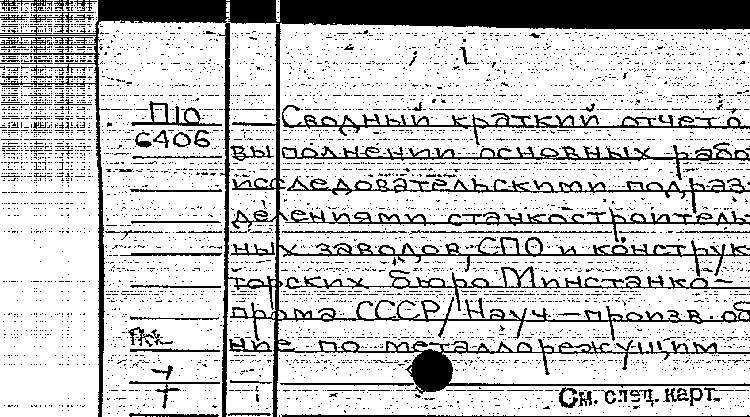 П10
6406
Сводный краткий отчет о
выполнении основных рабо
исследовательскими подраз
делениями станкостроитель
ных заводов, СПО и конструк
торских бюро Минстанко-
прома СССР/Науч.-произв. об
ние по металлорежущим
См. след. карт.